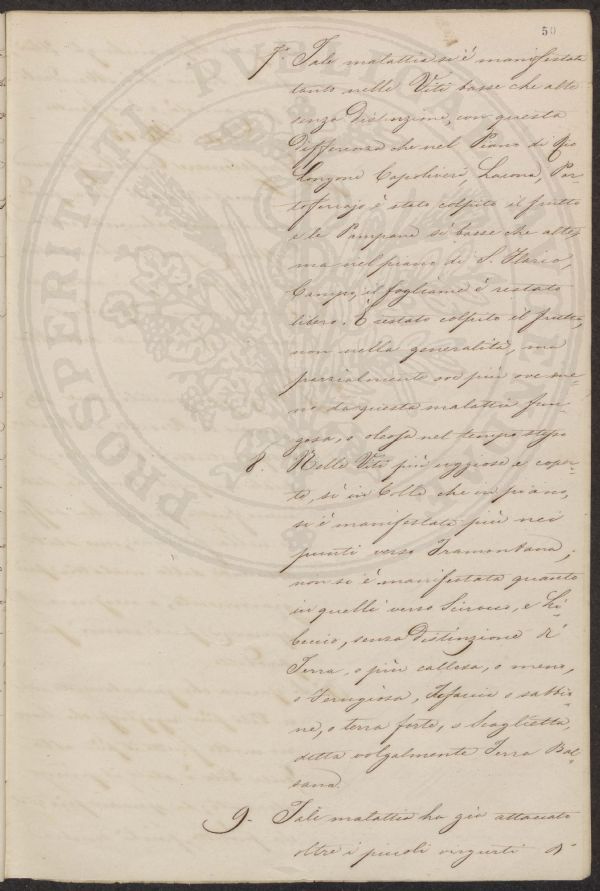 50
7. Tale malattia si è manifestata
tanto nelle Viti basse che alte
senza distinzione, con questa
differenza che nel Piano di Rio
Longone Capoliveri, Lacona, Por-
toferrajo è stato colpito il frutto
e le Pampane sì basse che alte,
ma nel piano di S. Ilario,
Campo, il fogliame è restato
libero. È restato colpito il frutto,
non nella generalità, ma
parzialmente ove più ove me-
no da questa malattia fun-
gosa, o oleosa nel tempo stesso
8. Nelle Viti più uggiose e coper-
te, sì in Colle che in piano,
si è manifestata più nei
punti verso Tramontana,
non si è manifestata quanto
in quelli verso Scirocco, e Li-
beccio, senza distinzione di
Terra, o più calcesa, o meno,
o Ferrugiosa, Tofacea o sabbio-
ne, o terra forte, o Scaglietta,
detta volgalmente Terra Bol-
sana.
9. Tale malattia ha già attaccato
oltre i piccoli virgulti di
PROSPERITATI PVBLICAE AVGENDAE